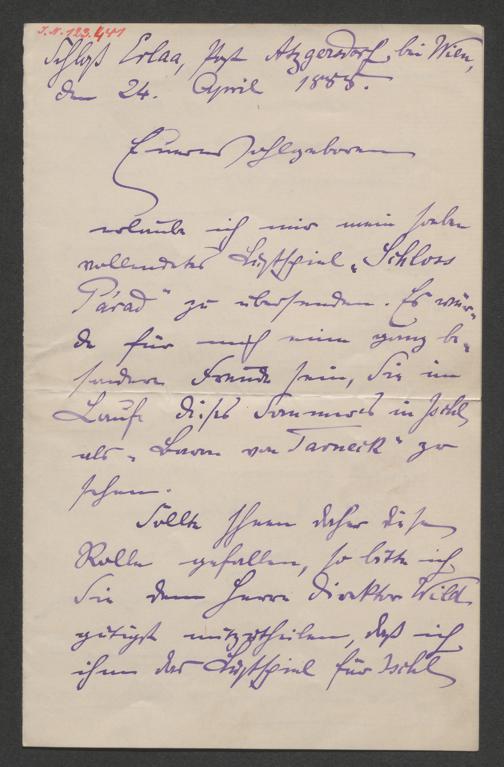 J. N. 123.441
Schloß Erlaa, Post Atzgersdorf bei Wien,
den 24. April 1888.
Euer Wohlgeboren
erlaube ich mir mein soeben
vollendetes Lustspiel „Schloss
Párad“ zu übersenden. Es wür-
de für mich eine ganz be-
sondere Freude sein, Sie im
Laufe dieses Sommers in Ischl
als „Baron von Tarneck“ zu
sehen.
Sollte Ihnen daher diese
Rolle gefallen, so bitte ich
Sie dem Herrn Direktor Wild
gütigst mitzutheilen, daß ich
ihm das Lustspiel für Ischl